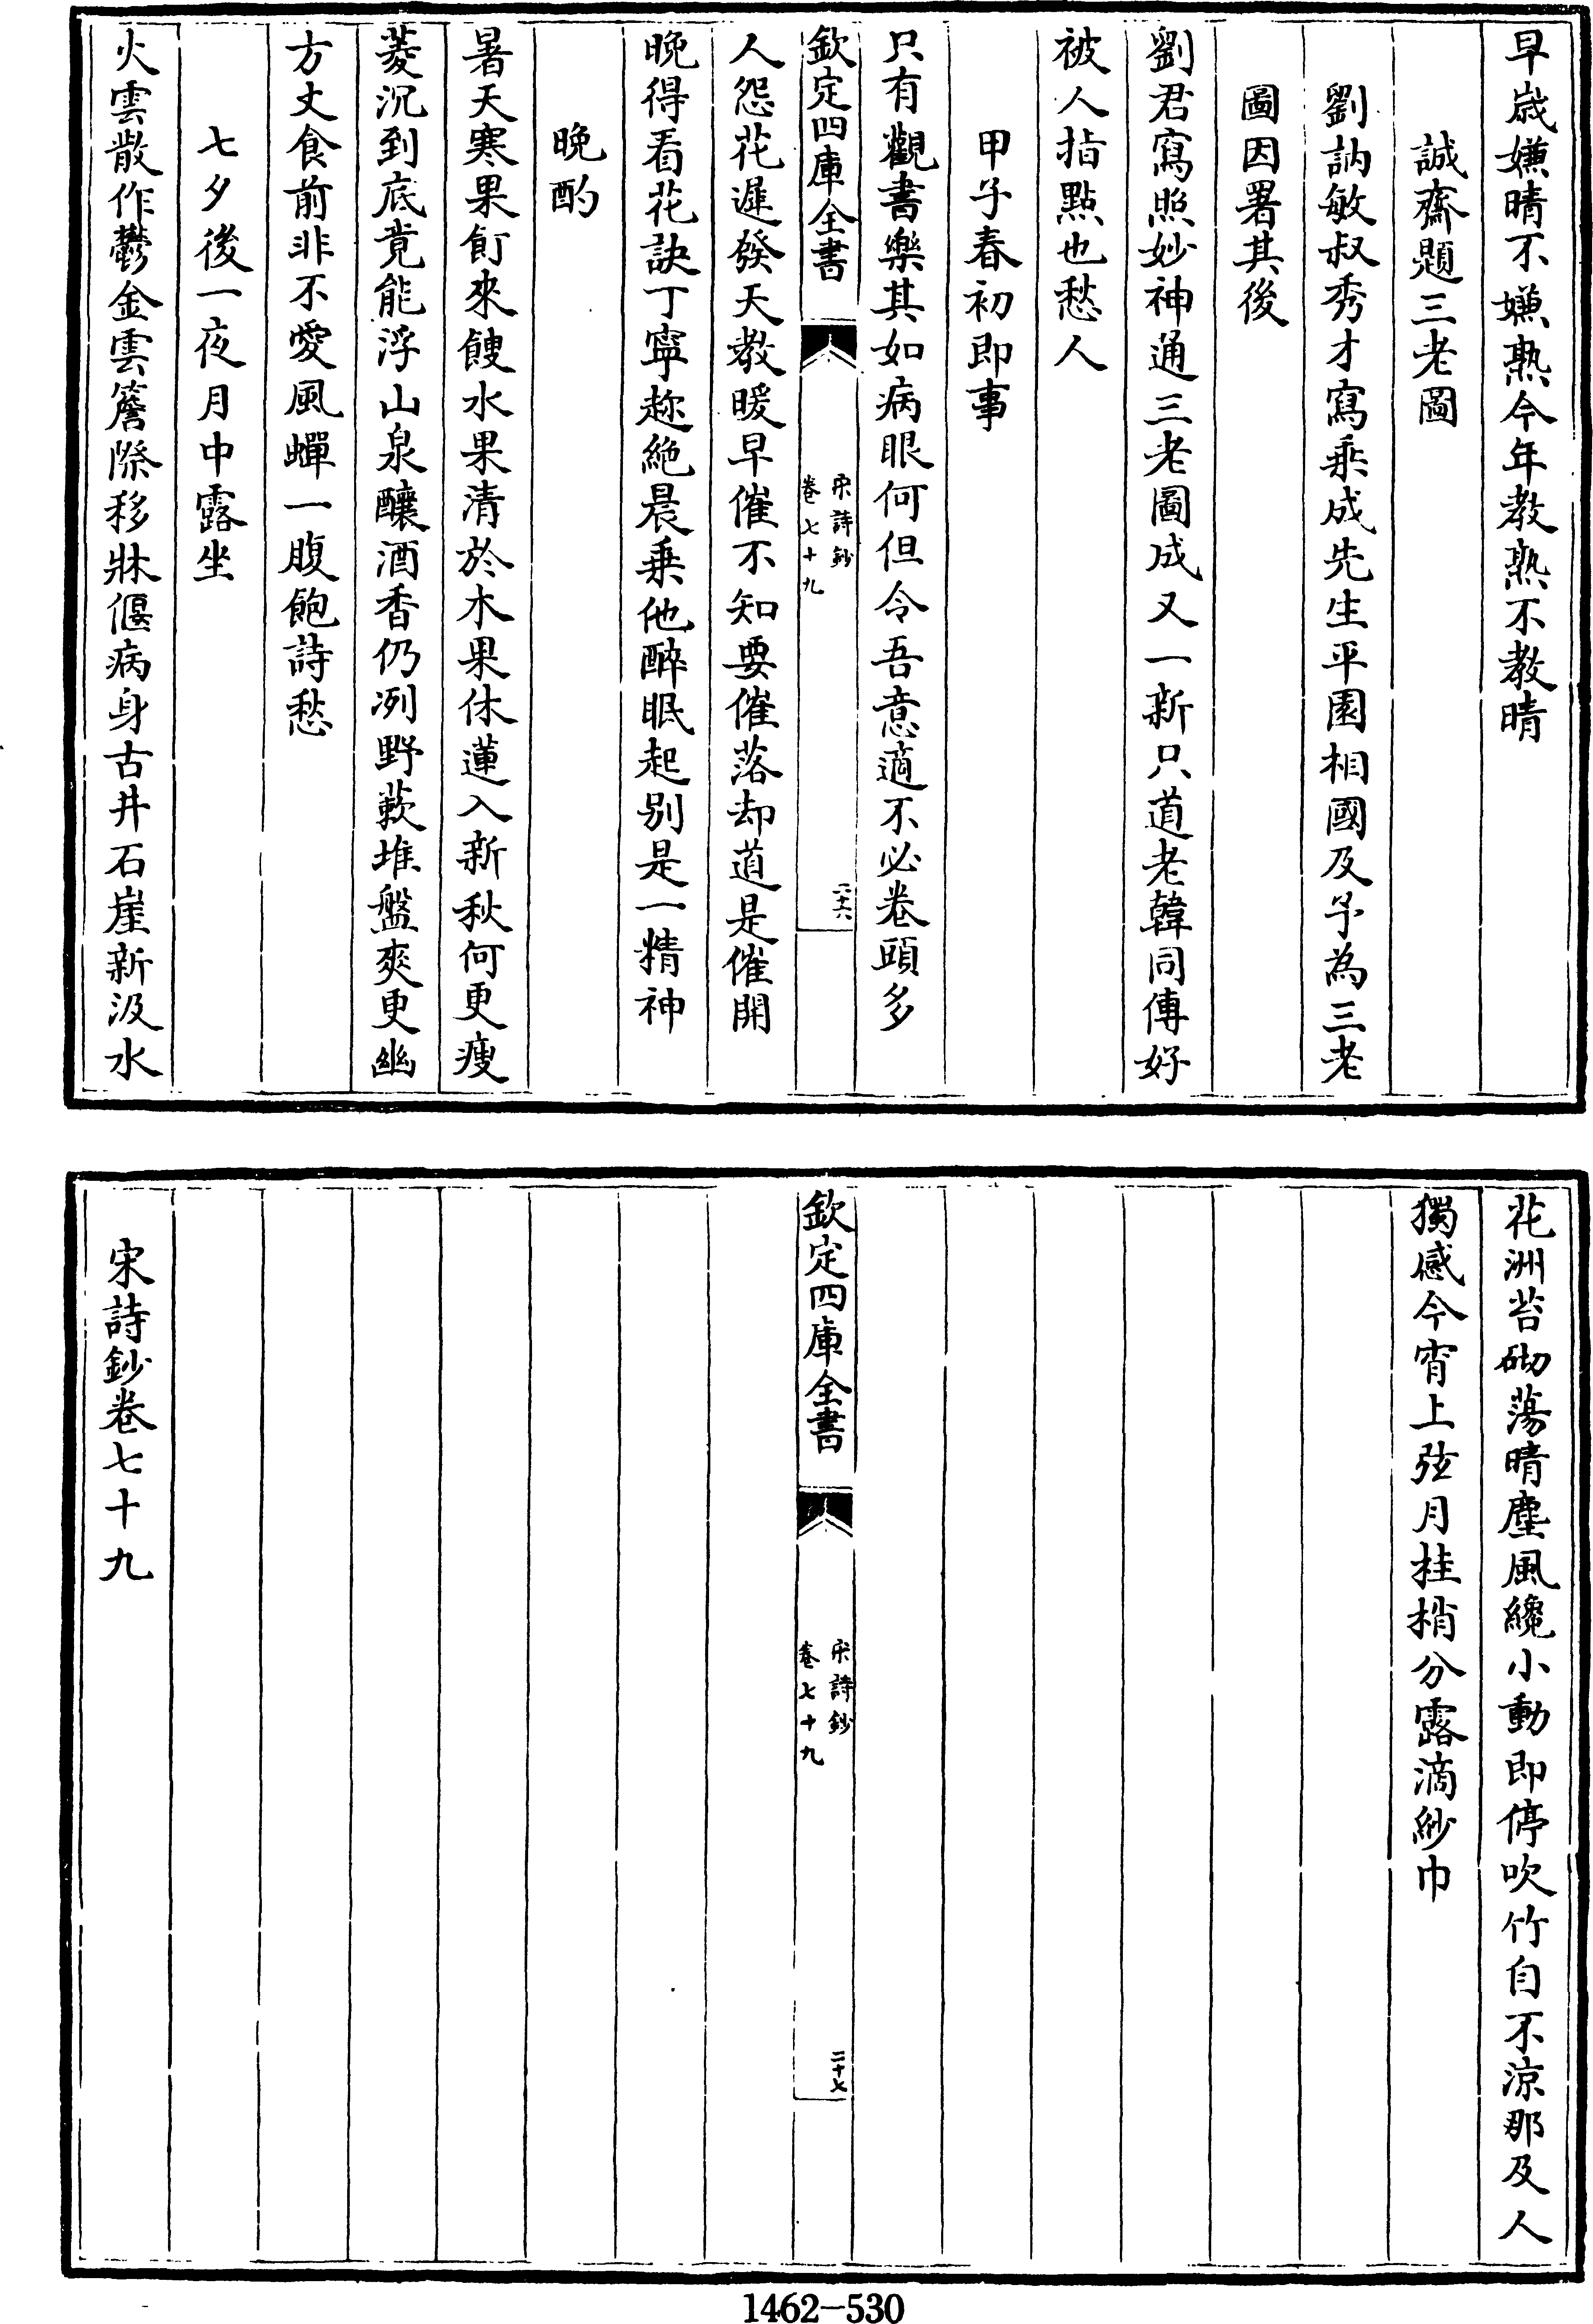 早歲嫌晴不嫌熟今年教熟不教晴
誠齋題三老圖
劉訥敏叔秀才寫乘成先生平園相國及予為三老
圖因署其後
劉君寫照妙神通三老圖成又一新只道老韓同傳好
被人指點也愁人
甲子春初即事
只有觀書樂其如病眼何但令吾意適不必卷頭多
欽定四庫全書
宋詩鈔
卷七十九
二十六
人怨花遲發天教暖早催不知要催落却道是催開
晚得看花訣丁寧趂絶晨乗他醉眠起别是一精神
晚酌
暑天寒果飣來餿水果清於木果休蓮入新秋何更瘦
菱沉到底竟能浮山泉釀酒香仍冽野蔌堆盤爽更幽
方丈食前非不愛風蟬一腹飽詩愁
七夕後一夜月中露坐
火雲散作鬱金雲簷際移牀偃病身古井石崖新汲水
花洲苔砌蕩晴塵風纔小動即停吹竹自不涼那及人
獨感今宵上弦月桂梢分露滴紗巾
欽定四庫全書
宋詩鈔
卷七十九
二十七
宋詩鈔卷七十九
1462-530